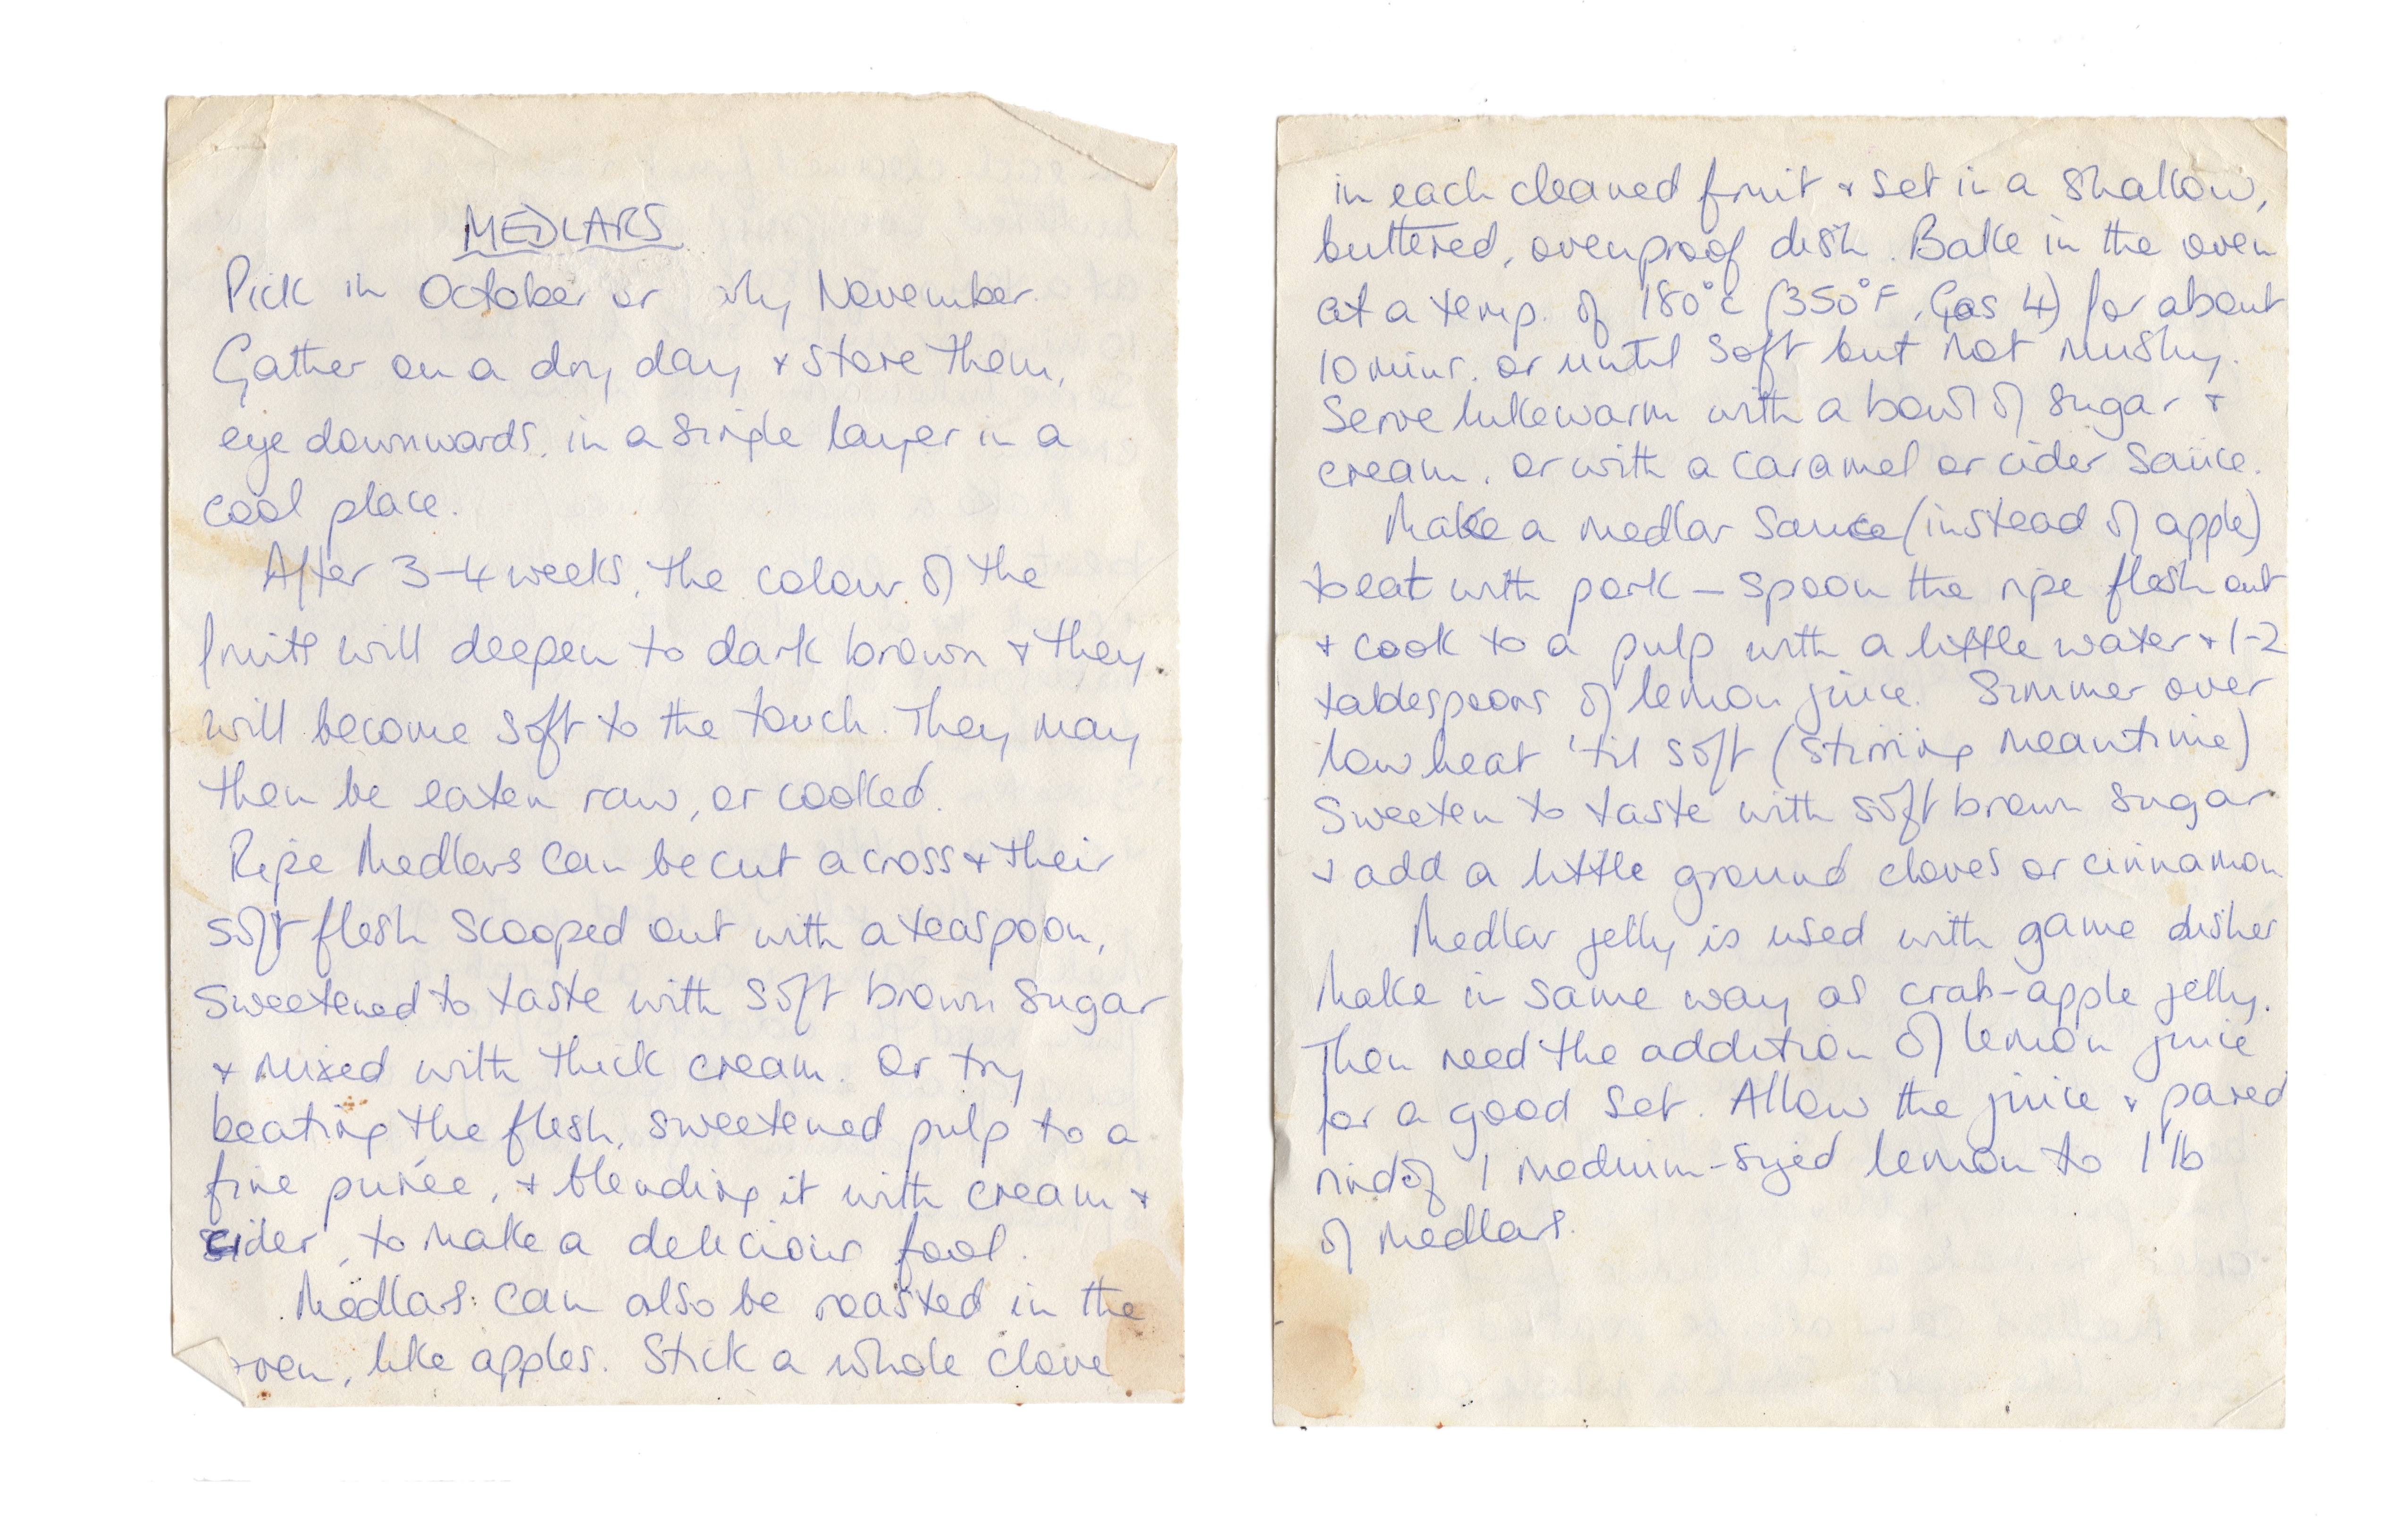 MEDLARS
Pick in October or early November.
Gather on a dry day & store them,
eye downwards, in a single layer in a
cool place.
After 3-4 weeks, the colour of the
fruits will deepen to dark brown & they
will become soft to the touch. They may
then be eaten raw, or cooked.
Ripe Medlars can be cut across & their
soft flesh scooped out with a teaspoon,
sweetened to taste with soft brown sugar
& mixed with thick cream. Or try
beating the flesh, sweetened pulp to a
fine purée, & blending it with cream &
cider, to make a delicious fool.
Medlars can also be roasted in the
oven, like apples. Stick a whole clove
in each cleaned fruit & set in a shallow,
buttered, ovenproof dish. Bake in the oven
at a temp. of 180°c (350°F, Gas 4) for about
10 mins. or until soft but not mushy.
Serve lukewarm with a bowl of sugar &
cream, or with a caramel or cider sauce.
Make a medlar sauce (instead of apple)
to eat with pork – spoon the ripe flesh out
& cook to a pulp with a little water & 1-2
tablespoons of lemon juice. Simmer over
low heat 'til soft (stirring meantime)
Sweeten to taste with soft brown sugar
& add a little ground cloves or cinnamon
Medlar jelly is used with game dishes
Make in same way as crab-apple jelly.
They need the addition of lemon juice
for a good set. Allow the juice & pared
rind of 1 medium-sized lemon to 1 lb
of Medlars.